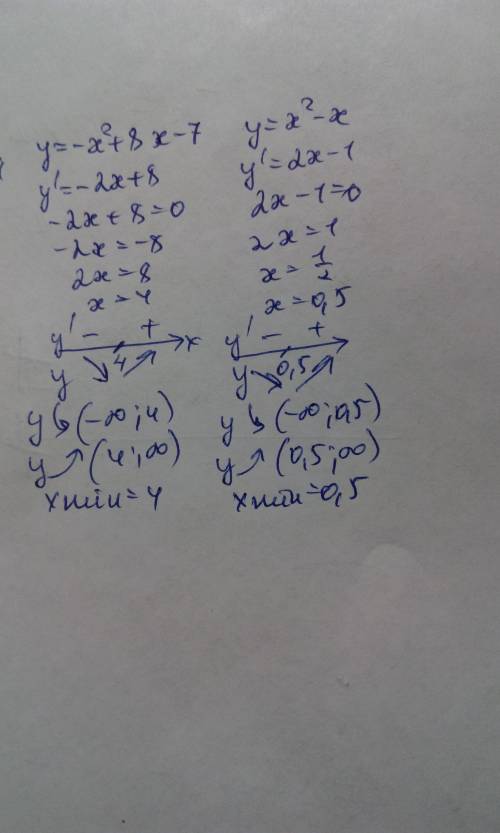 y=-x²+8x-7
y'=-2x+8
-2x+8=0
-2x=-8
2x=8
x=4
y' - + x
y ↘ 4 ↗
y ↘ (-∞; 4)
y ↗ (4; ∞)
xmin=4
y=x²-x
y'=2x-1
2x-1=0
2x=1
x=1/2
x=0,5
y' - +
y ↘ 0,5 ↗
y ↘ (-∞; 0,5)
y ↗ (0,5; ∞)
xmin=0,5